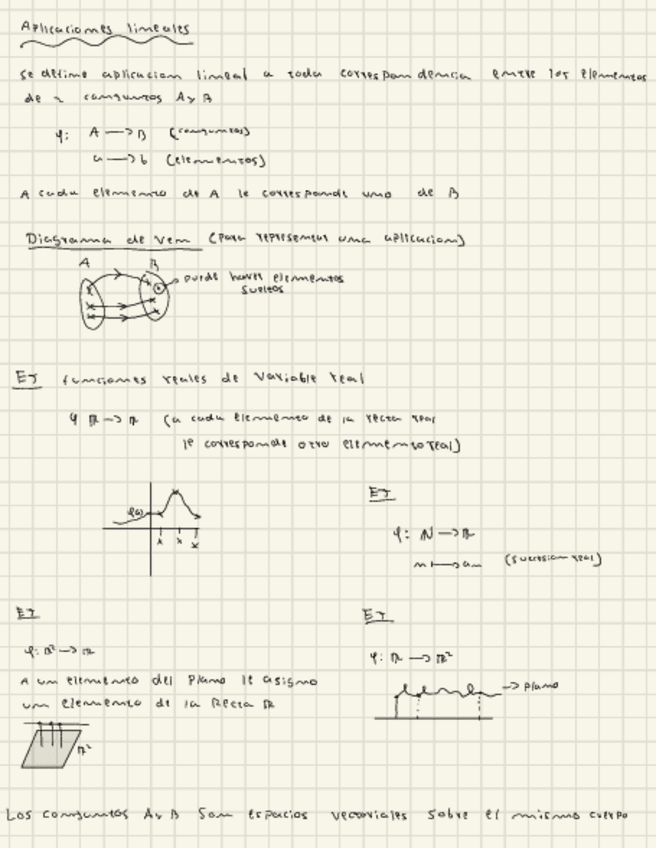 Aplicaciones lineales
se define aplicacion lineal a toda correspondencia entre los elementos
de 2 conjuntos A y B
φ: A → B (conjuntos)
a → b (elementos)
A cada elemento de A le corresponde uno de B
Diagrama de Venn (para representar una aplicacion)
A B
puede haver elementos
sueltos
EJ funciones reales de variable real
φ R → R (a cada elemento de la recta real
le corresponde otro elemento real)
φ(x)
x x x
EJ
φ: N → R
n ↦ an (sucesion real)
EJ
φ: R² → R
A un elemento del plano le asigno
un elemento de la Recta R
R²
EJ
φ: R → R²
→ plano
Los conjuntos A y B son espacios vectoriales sobre el mismo cuerpo